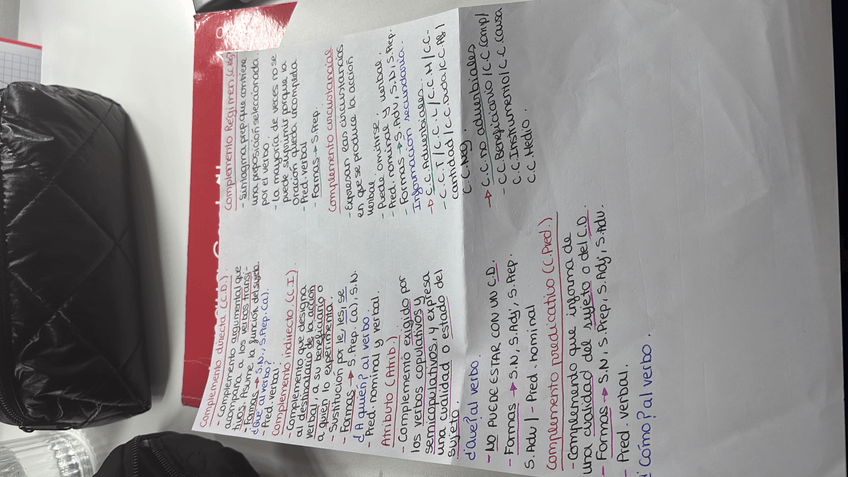 Complemento directo (C.D.)
- Complemento argumental que
acompaña a los verbos transi-
tivos. Asume la función del sujeto.
- Formas → S.N., S.Prep. (a).
¿Qué? al verbo?
- Pred. verbal
Complemento indirecto (C.I.)
- Complemento que designa
al destinatario de la acción
verbal, a su beneficiario o
a quién lo experimenta.
- Sustitución por le, les, se
- Formas → S.Prep. (a), S.N.
¿A quién? al verbo.
- Pred. nominal y verbal.
Atributo (Atrib.)
- Complemento exigido por
los verbos copulativos y
semicopulativos, y expresa
una cualidad o estado del
sujeto.
¿Qué? al verbo.
- NO PUEDE ESTAR CON UN C.D.
- Formas → S.N, S.Adj, S.Prep.
S.Adv | - Pred. nominal
Complemento predicativo (C.Pred.)
- Complemento que informa de
una cualidad del sujeto o del C.D.
- Formas → S.N, S.Prep, S.Adj, S.Adv.
- Pred. verbal.
¿Cómo? al verbo.
Complemento Régimen (C.Rég)
- Sintagma prep que contiene
una preposición seleccionada
por el verbo.
- La mayoría de veces no se
puede suprimir porque la
oración queda incompleta.
- Pred. verbal
- Formas → S.Prep.
Complemento circunstancial
- Expresan las circunstancias
en que se produce la acción
verbal
- Puede omitirse.
- Pred. nominal y verbal.
- Formas → S.Adv, S.N, S.Prep.
Información secundaria.
→ C.C. Adverbiales.
- C.C.T / C.C.L / C.C.M / C.C.
cantidad / C.C.Duda / C.C.Af /
C.C.Neg.
→ C.C. no adverbiales
- C.C. Beneficiario / C.C Comp /
C.C. Instrumento / C.C Causa
C.C. Medio.